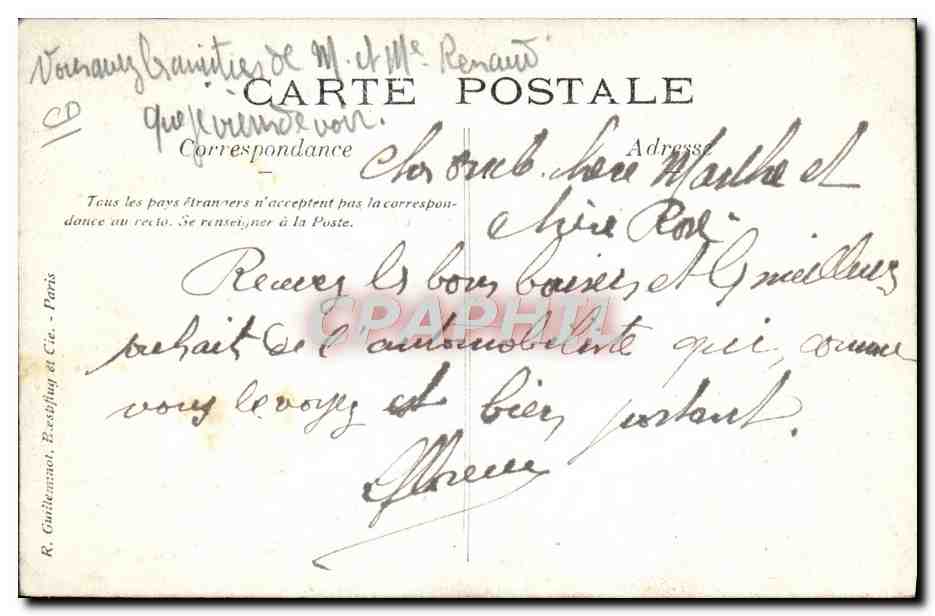 Vous avez les amitiés de M. et Me Renaud
CARTE POSTALE
CD
que je viens de voir.
Correspondance
Adresse
chère Marthe et
Tous les pays étrangers n'acceptent pas la correspon-
dance au recto. Se renseigner à la Poste.
chère Rose
Recevez les bons baisers et les meilleurs
CPARHI
souhaits de l'automobiliste qui, comme
vous le voyez est bien portant.
R. Guilleminot, Bœspflug et Cie. - Paris